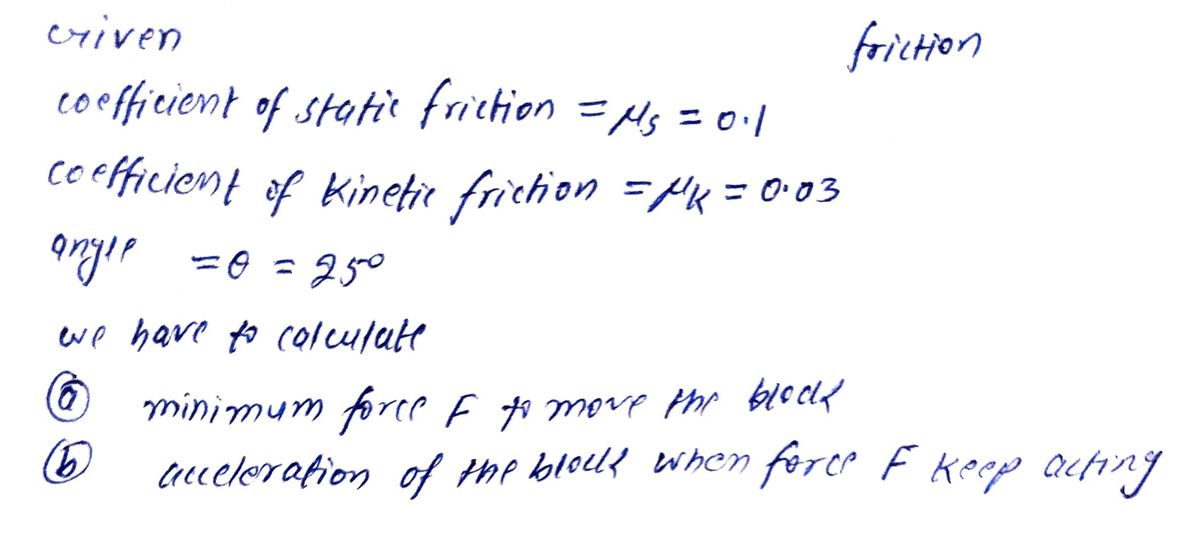 Given
friction
coefficient of static friction = μs = 0.1
coefficient of kinetic friction = μK = 0.03
angle = θ = 25°
we have to calculate
(a) minimum force F to move the block
(b) acceleration of the block when force F keep acting